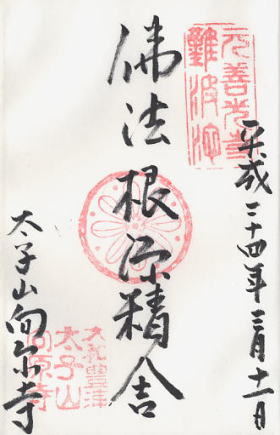 元善光寺
難波池
平成二十四年三月十一日
佛法根源精舎
太子山向原寺
大和豊浦
太子山
向原寺